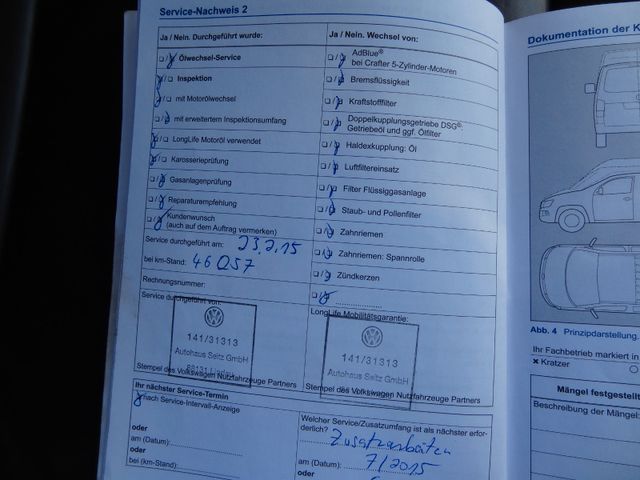 Service-Nachweis 2
Ja / Nein. Durchgeführt wurde:
Ölwechsel-Service
Inspektion
mit Motorölwechsel
mit erweitertem Inspektionsumfang
LongLife Motoröl verwendet
Karosserieprüfung
Gasanlagenprüfung
Reparaturempfehlung
Kundenwunsch
(auch auf dem Auftrag vermerken)
Service durchgeführt am: 23.2.15
bei km-Stand: 46057
Rechnungsnummer:
Service durchgeführt von:
141/31313
Autohaus Seitz GmbH
Stempel des Volkswagen Nutzfahrzeuge Partners
Ja / Nein. Wechsel von:
AdBlue®
bei Crafter 5-Zylinder-Motoren
Bremsflüssigkeit
Kraftstofffilter
Doppelkupplungsgetriebe DSG®:
Getriebeöl und ggf. Ölfilter
Haldexkupplung: Öl
Luftfiltereinsatz
Filter Flüssiggasanlage
Staub- und Pollenfilter
Zahnriemen
Zahnriemen: Spannrolle
Zündkerzen
LongLife Mobilitätsgarantie:
141/31313
Autohaus Seitz GmbH
Stempel des Volkswagen Nutzfahrzeuge Partners
Ihr nächster Service-Termin
nach Service-Intervall-Anzeige
oder
am (Datum):
oder
bei (km-Stand):
Welcher Service/Zusatzumfang ist als nächster erfor-
derlich?
Zusatzarbeiten
am (Datum): 7/2015
oder
Dokumentation der K
Abb. 4 Prinzipdarstellung.
Ihr Fachbetrieb markiert in
Kratzer
Mängel festgestellt
Beschreibung der Mängel: